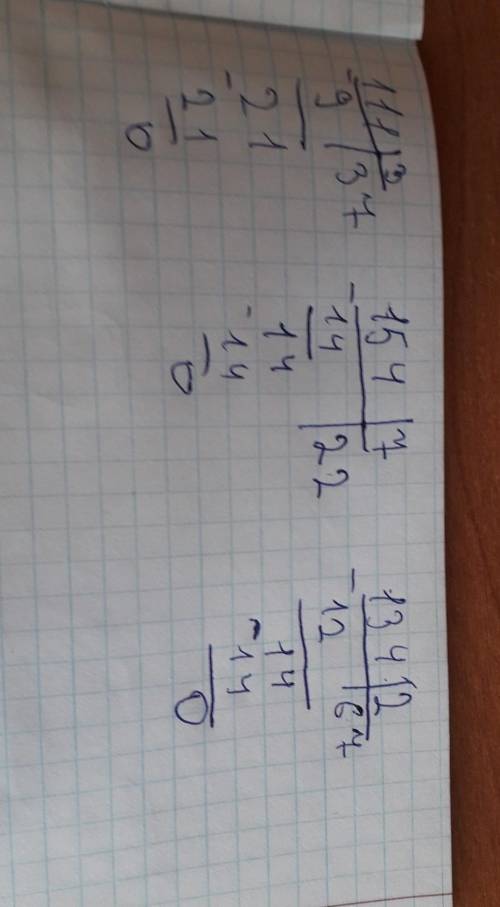 111 | 3
- 9 | 37
- 21
21
0
- 154 | 7
14 | 22
14
- 14
0
- 134 | 2
12 | 67
14
- 14
0